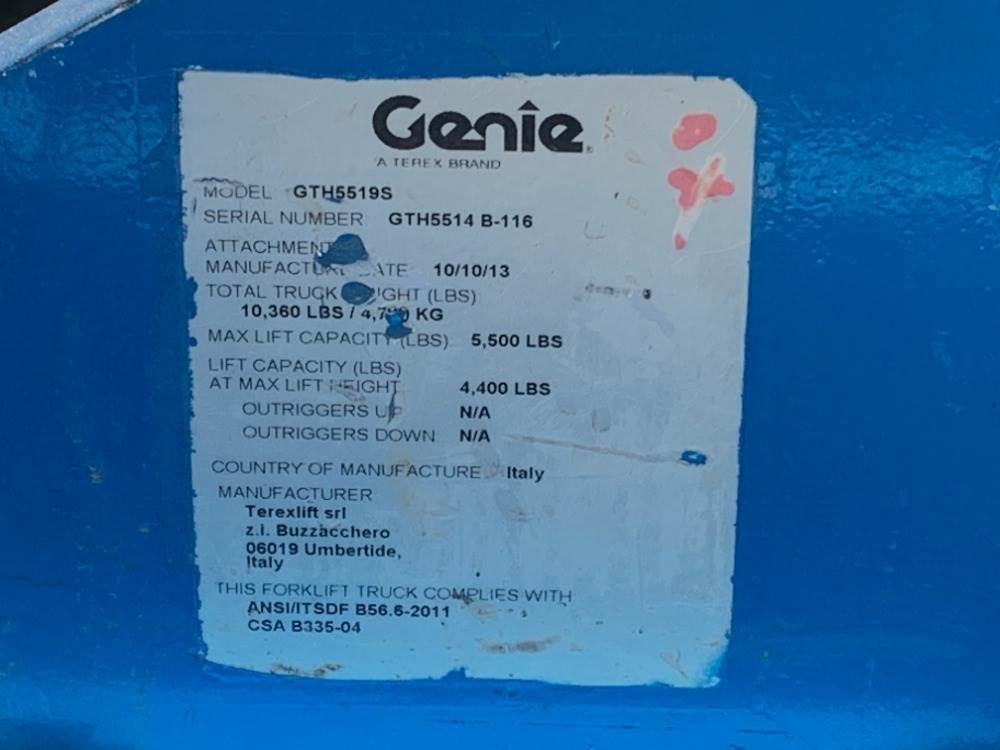 Genie
A TEREX BRAND
MODEL GTH5519S
SERIAL NUMBER GTH5514 B-116
ATTACHMENT
MANUFACTURE DATE 10/10/13
TOTAL TRUCK WEIGHT (LBS)
10,360 LBS / KG
MAX LIFT CAPACITY (LBS) 5,500 LBS
LIFT CAPACITY (LBS)
AT MAX LIFT HEIGHT 4,400 LBS
OUTRIGGERS UP N/A
OUTRIGGERS DOWN N/A
COUNTRY OF MANUFACTURE Italy
MANUFACTURER
Terexlift srl
z.i. Buzzacchero
06019 Umbertide,
Italy
THIS FORKLIFT TRUCK COMPLIES WITH
ANSI/ITSDF B56.6-2011
CSA B335-04